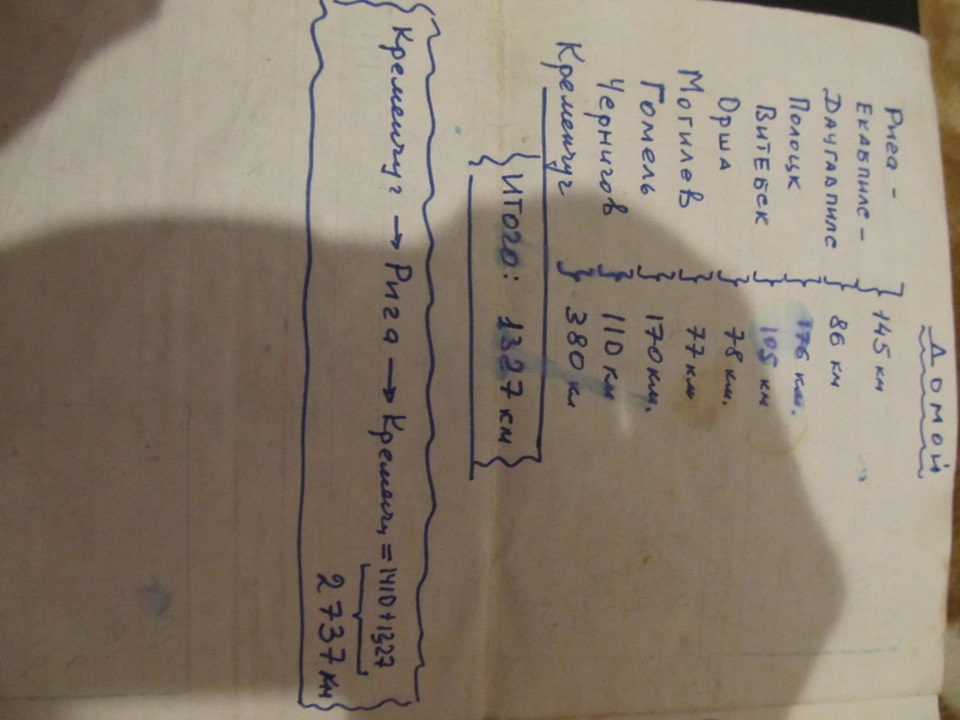 Домой
Рига -
Екабпилс - } 145 км
Даугавпилс } 86 км
Полоцк } 176 км.
Витебск } 105 км
Орша } 78 км.
Могилев } 77 км
Гомель } 170 км.
Чернигов } 110 км
Кременчуг } 380 км
Итого: 1327 км
Кременчуг → Рига → Кременч, = 1410 + 1327
2737 км